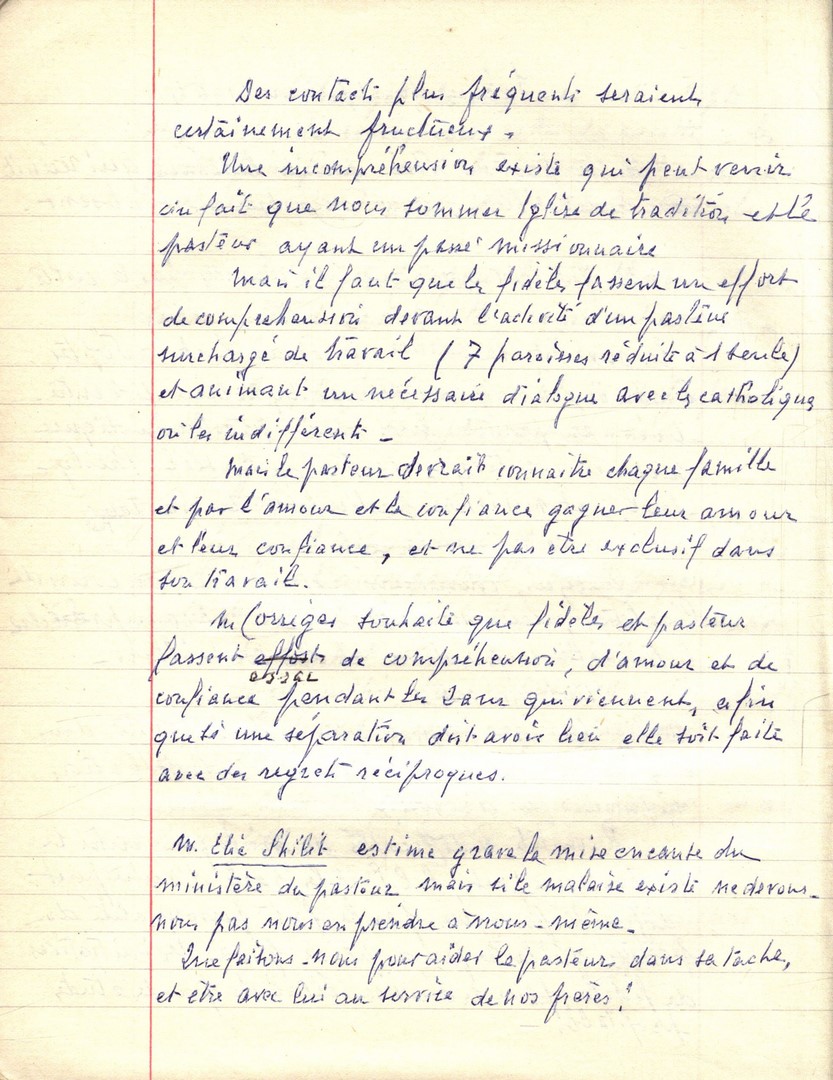 Des contacts plus fréquents seraient
certainement fructueux.
Une incompréhension existe qui peut venir
du fait que nous sommes Eglise de tradition et le
pasteur ayant un passé missionnaire
Mais il faut que les fidèles fassent un effort
de compréhension devant l'activité d'un pasteur
surchargé de travail (7 paroisses réduite à 1 seule)
et animant un nécessaire dialogue avec les catholiques
ou les indifférents -
Mais le pasteur devrait connaitre chaque famille
et par l'amour et la confiance gagner leur amour
et leur confiance, et ne pas être exclusif dans
son travail.
M Corrigès souhaite que fidèles et pasteur
fassent efforts de compréhension, d'amour et de
essai
confiance pendant les 2 ans qui viennent, afin
que si une séparation doit avoir lieu elle soit faite
avec des regrets réciproques.
M. Elie estime grave la mise en cause du
ministère du pasteur mais si le malaise existe ne devons-
nous pas nous en prendre à nous-même.
Que faisons-nous pour aider le pasteur dans sa tache,
et etre avec lui au service de nos frères ?